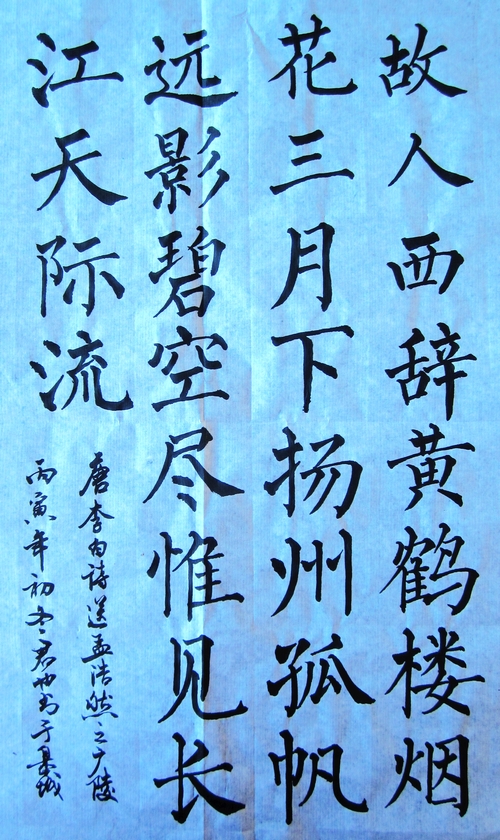 故人西辞黄鹤楼烟
花三月下扬州孤帆
远影碧空尽惟见长
江天际流
唐李白诗送孟浩然之广陵
丙寅年初冬君